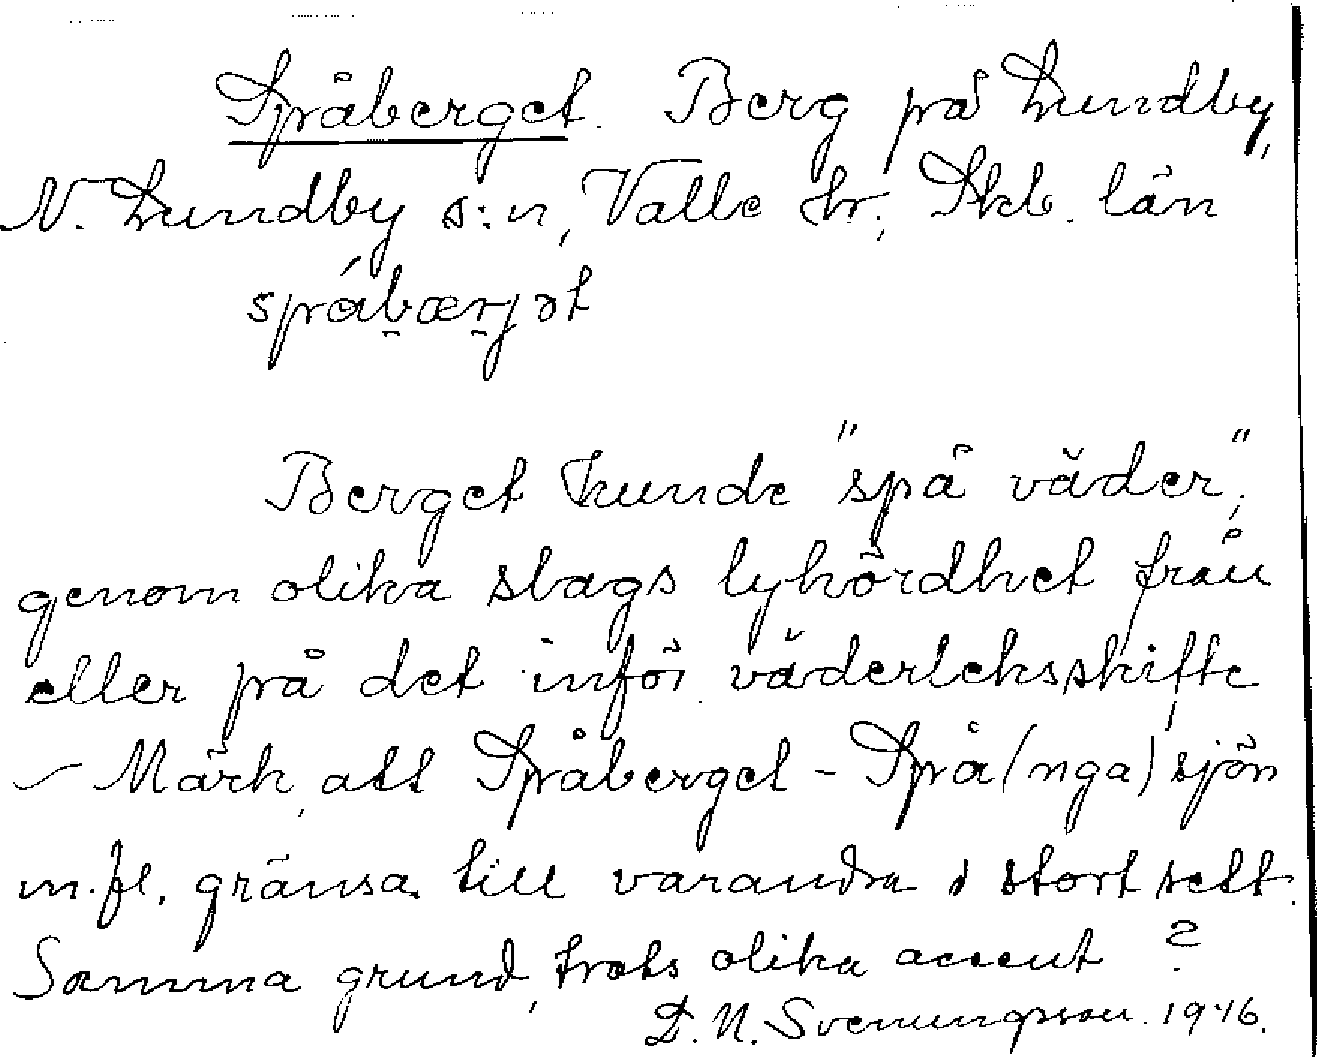 Spåberget. Berg på Lundby,
N. Lundby s:n, Valle hr, Skb. län
spåbærjət
Berget kunde "spå väder",
genom olika slags lyhördhet från
eller på det inför väderleksskifte
– Märk, att Spåberget - Spå(nga)sjön
m.fl. gränsa till varandra i stort sett.
Samma grund, trots olika accent?
D. N. Svenungsson. 1946.